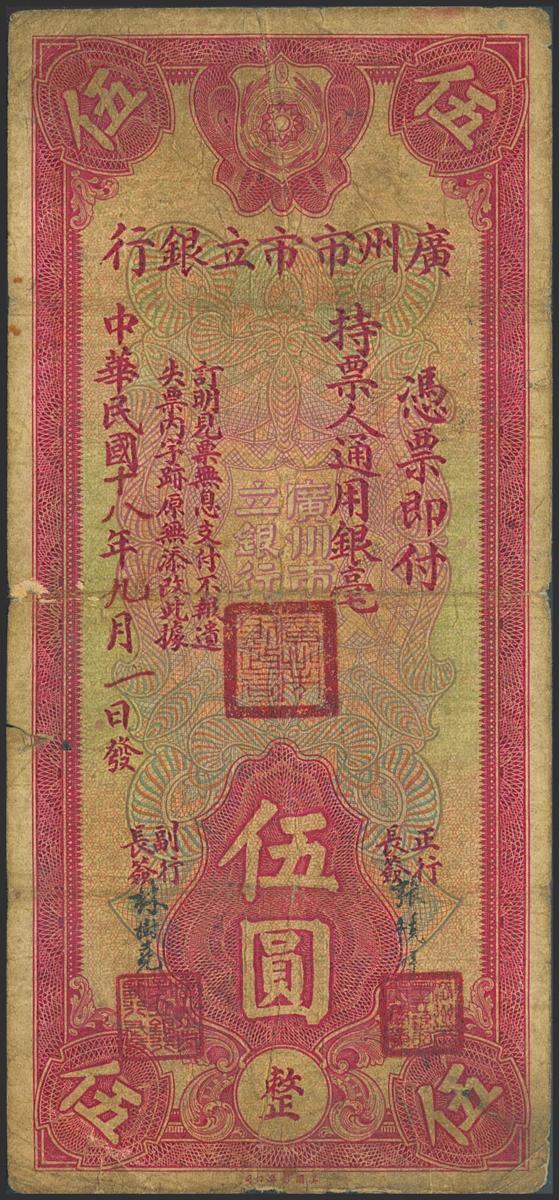 伍 伍
廣州市市立銀行
憑票即付
持票人通用銀毫
廣州市
立銀行
訂明見票無息支付不報遺
失票內字跡原無添改此據
中華民國十八年九月一日發
伍圓
整
正行
長簽
副行
長簽
林樹堯
伍 伍